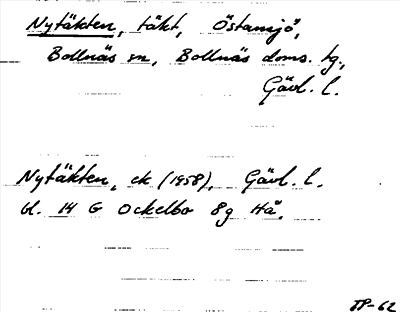 Nytäkten, täkt, Östansjö,
Bollnäs sn, Bollnäs doms. tg.,
Gävl. l.
Nytäkten, ek (1958), Gävl. l.
bl. 14 G Ockelbo 8g Hå.
PP-62